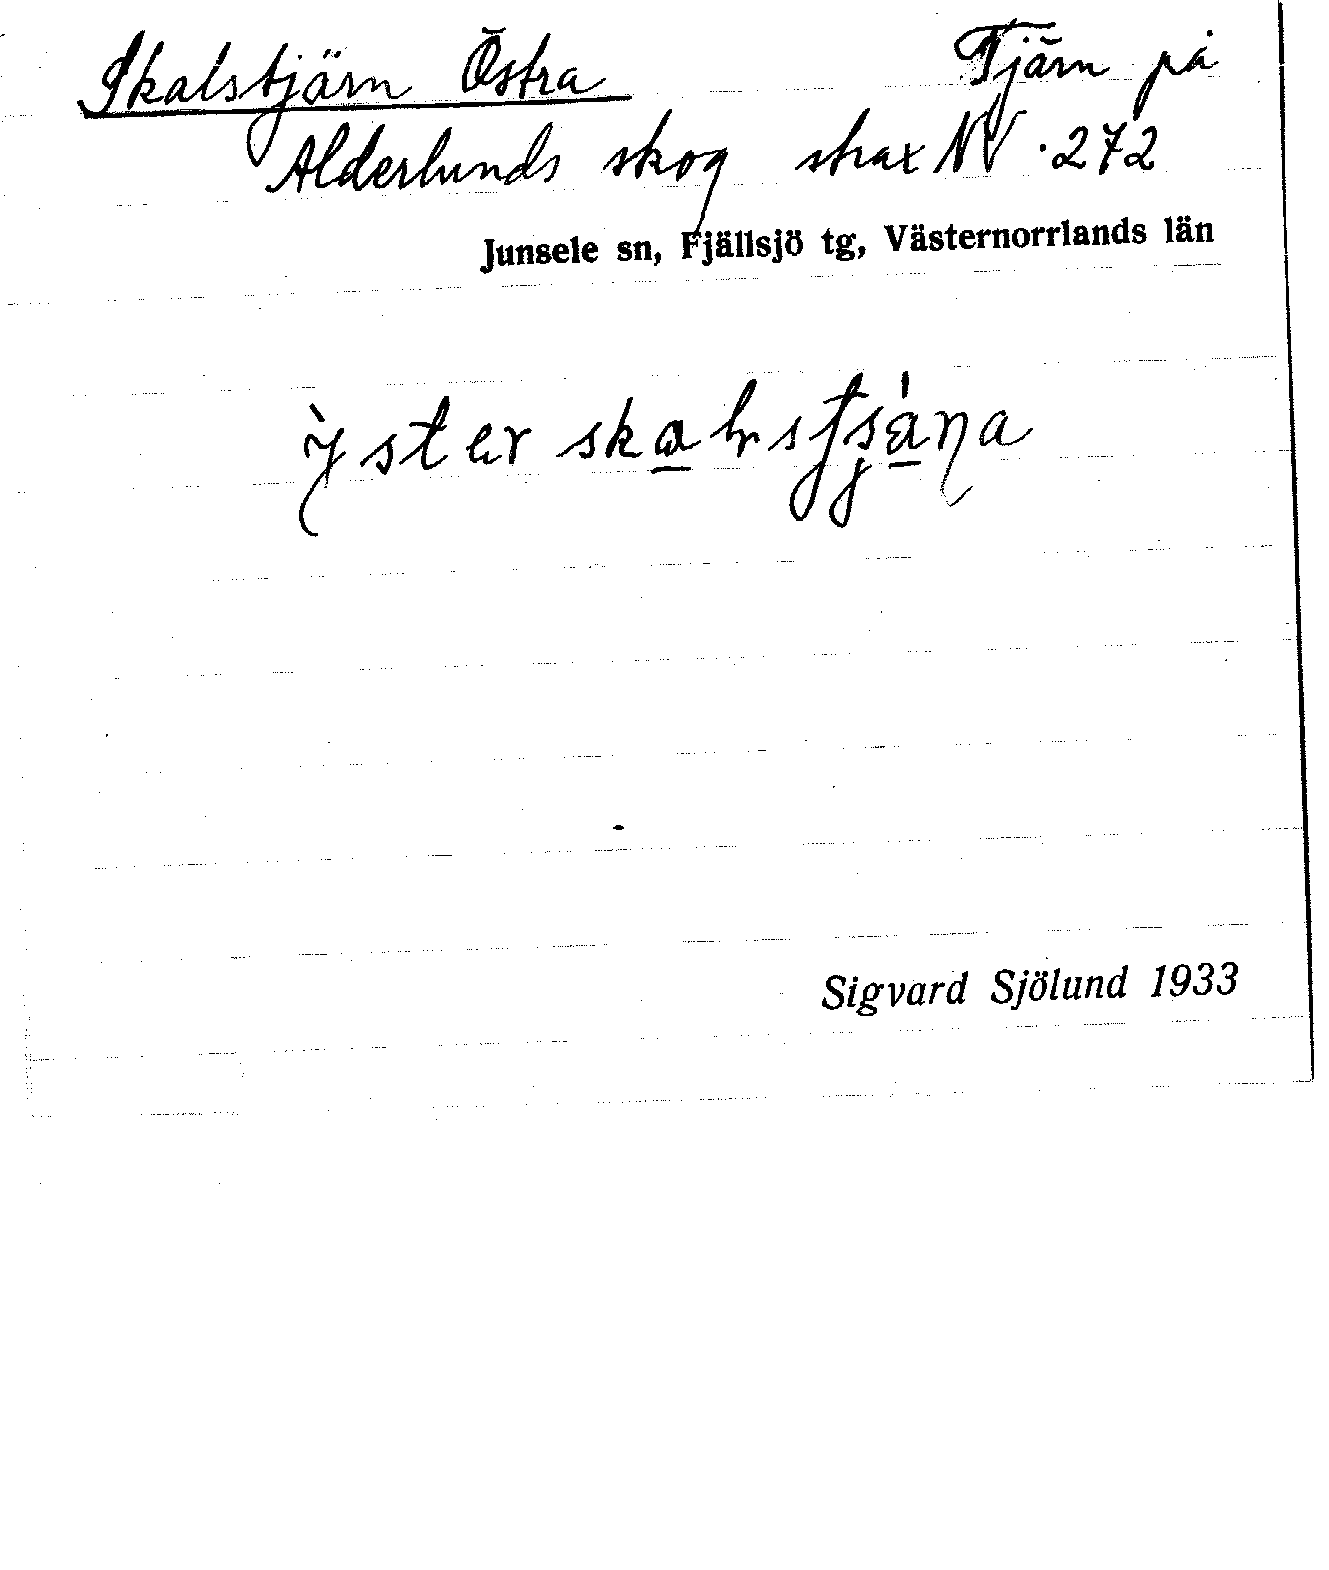 Skalstjärn Östra Tjärn på
Alderlunds skog strax NV ·272
Junsele sn, Fjällsjö tg, Västernorrlands län
Sigvard Sjölund 1933